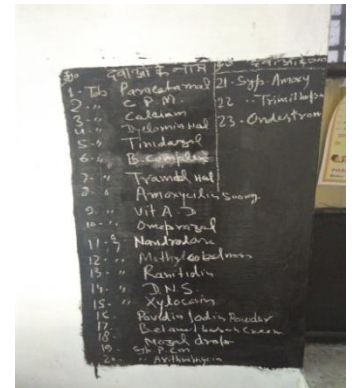 क्र० दवाओं के नाम
1 - Tab Paracetamal
2 - " C P.M.
3 - " Calciam
4 - " Dyclomin Hal
5 - " Tinidazol
6 - " B. complex
7 - " Tramol Hal
8 - " Amoxycilin 500mg
9 - " Vit A. D
10 - " Omeprazol
11 - Nandrolone
12 - " Methylcobalmon
13 - " Ranitidin
14 - " D.N.S.
15 - " Xylocain
16 - Povdin Iodin Powder
17 - Betamethasan Cream
18 - Mozal drop
19 Syp. P. cm
20 - " Arithromycin
21 - Syp. Amoxy
22 - "
23 - Ondestron